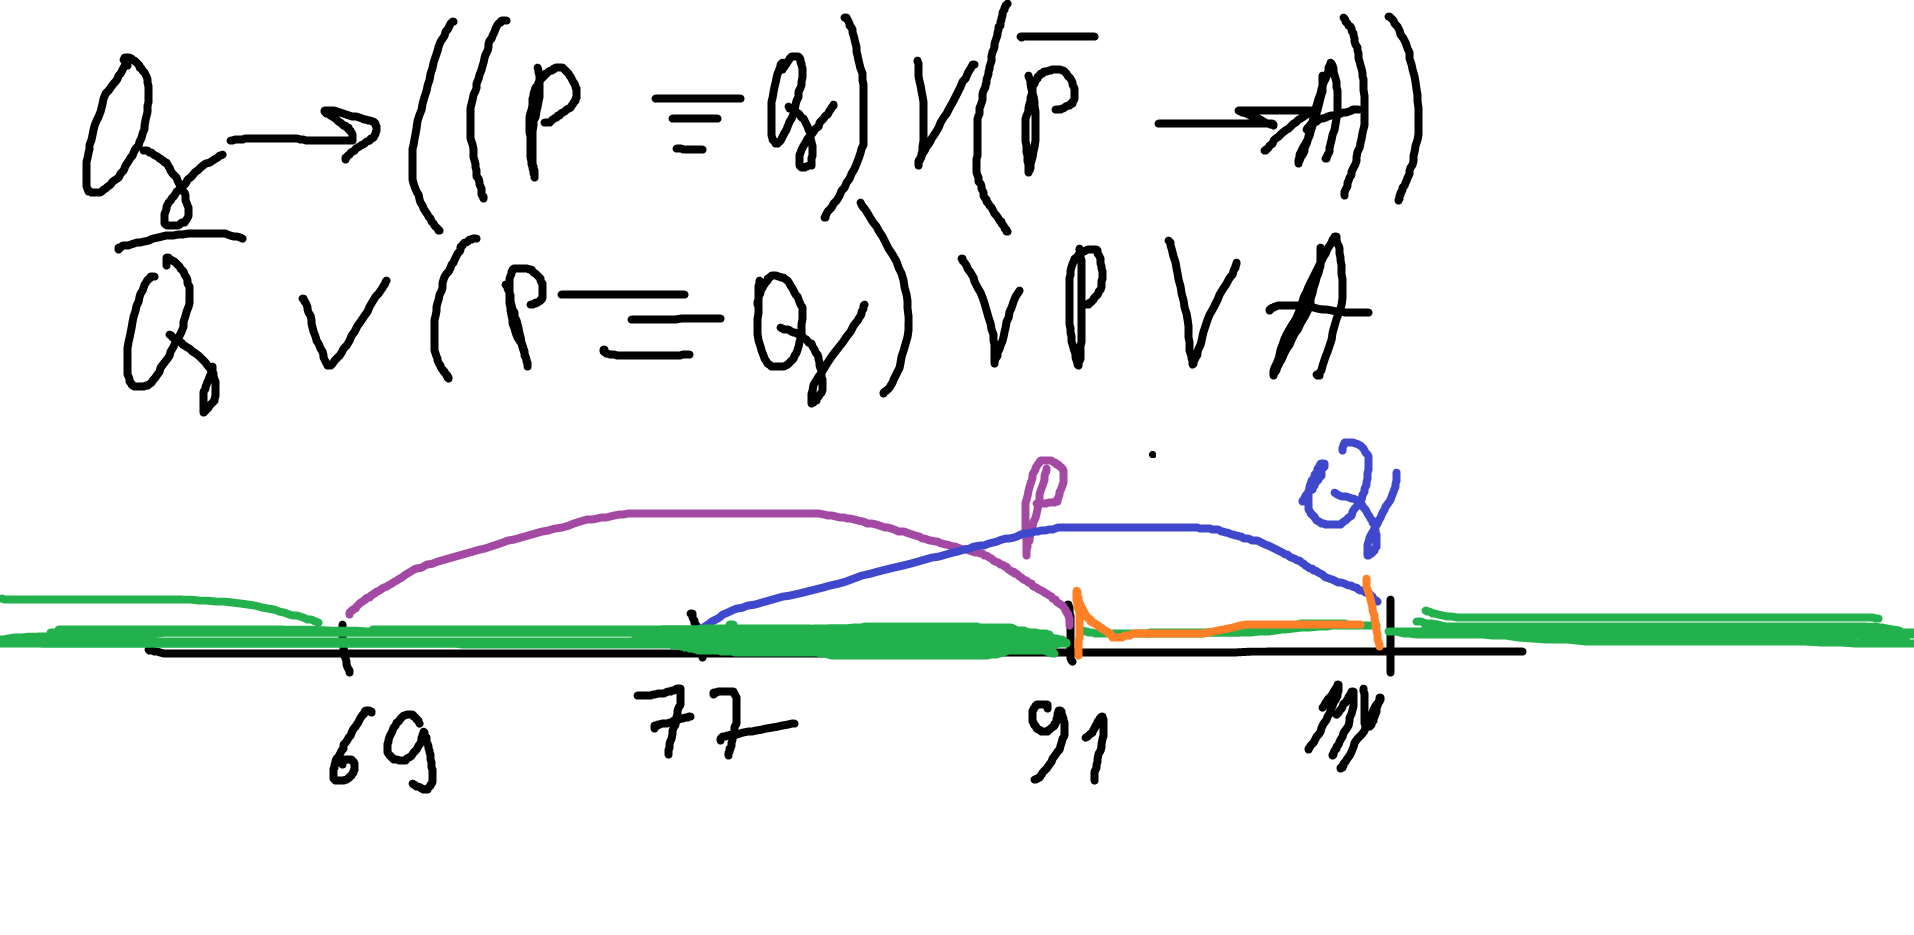 Q → ((P ≡ Q) ∨ (P̅ → A))
Q̅ ∨ (P ≡ Q) ∨ P ∨ A
P Q
69 77 91 114